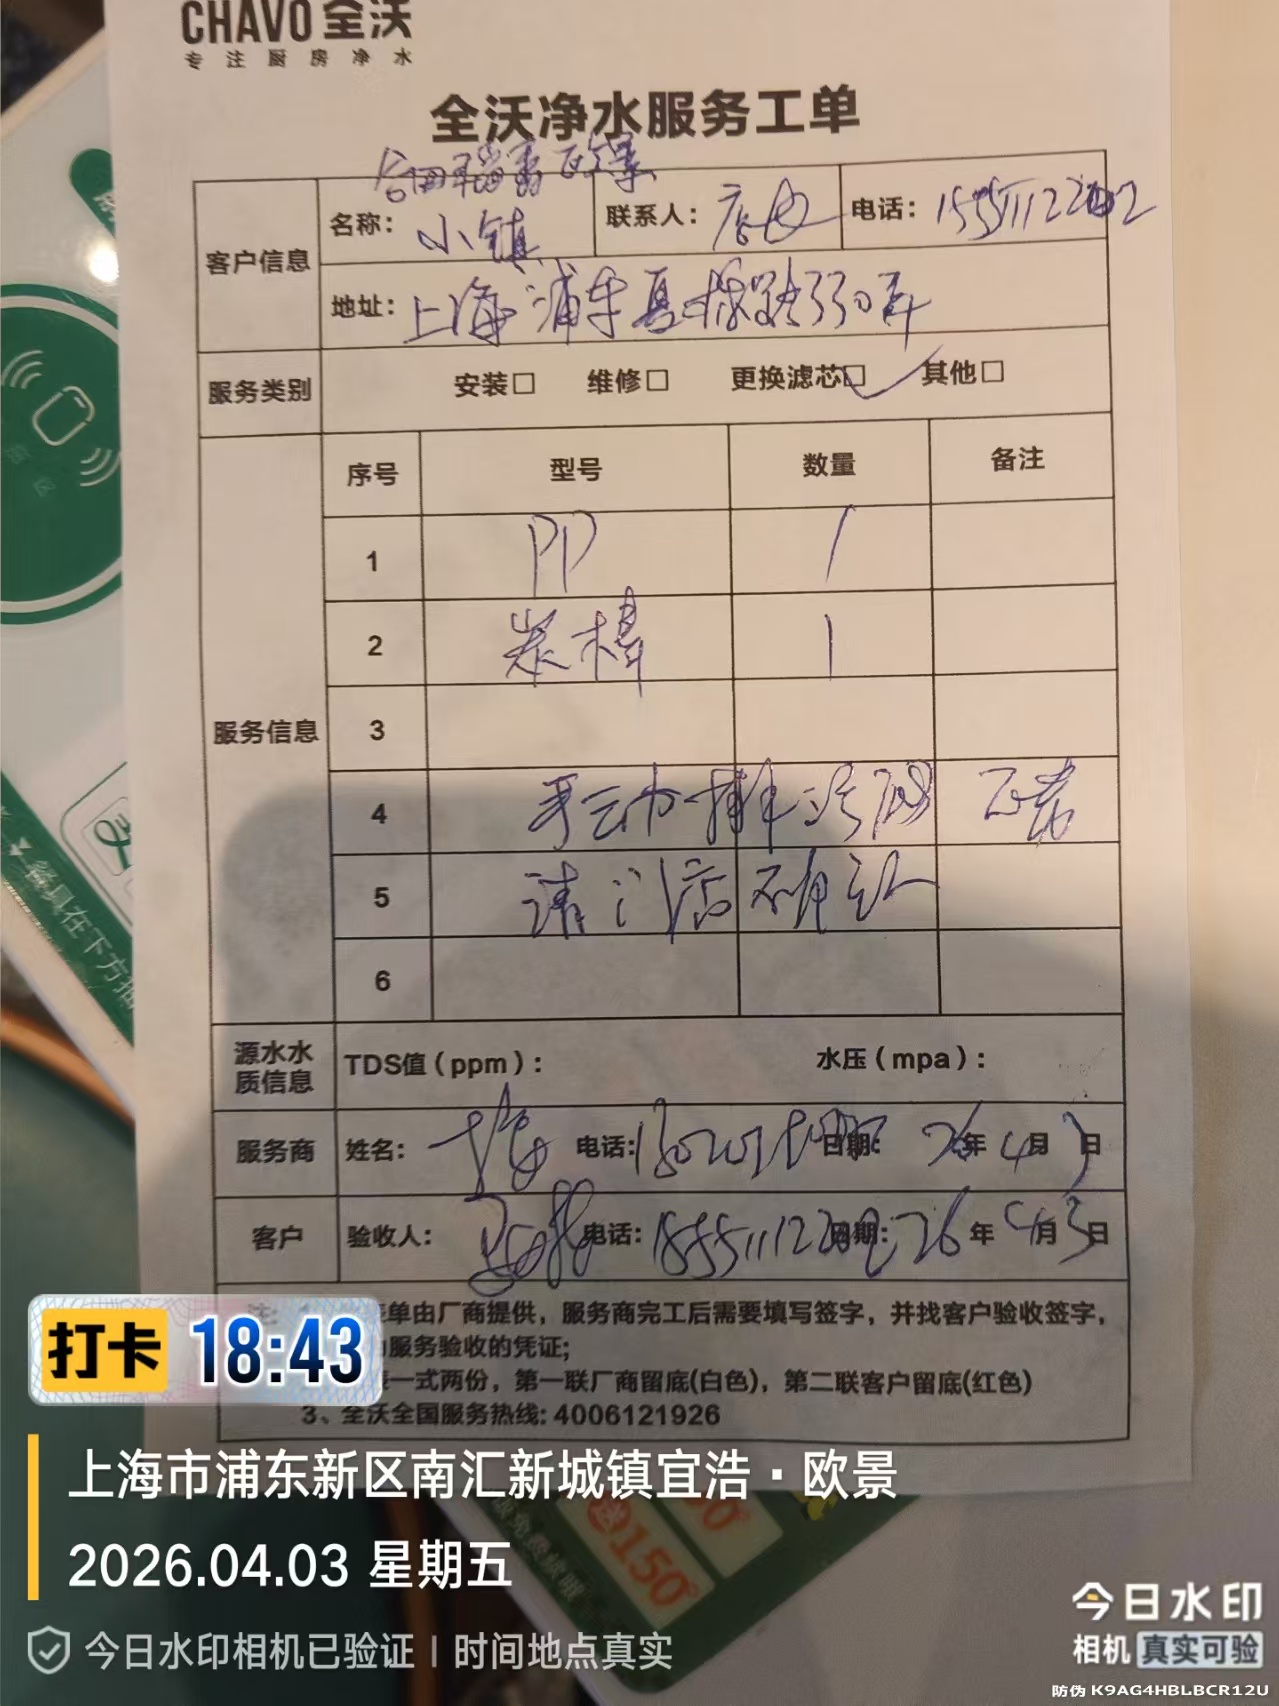 CHAVO 全沃
专注厨房净水
全沃净水服务工单
客户信息
名称： 小镇
联系人： 店长
电话： 15551112202
地址： 上海浦东夏栎路330弄
服务类别
安装□ 维修□ 更换滤芯□ 其他□
服务信息
序号 型号 数量 备注
1 PP 1
2 炭棒 1
3
4 手动排污阀 正常
5 请门店确认
6
源水水质信息
TDS值（ppm）： 水压（mpa）：
服务商 姓名： 电话: 日期: 26年4月3日
客户 验收人： 电话: 日期: 26年4月3日
单由厂商提供，服务商完工后需要填写签字，并找客户验收签字，
服务验收的凭证；
一式两份，第一联厂商留底(白色)，第二联客户留底(红色)
3、全沃全国服务热线: 4006121926
餐具在下方抽
送150°
打卡 18:43
上海市浦东新区南汇新城镇宜浩·欧景
2026.04.03 星期五
今日水印相机已验证 | 时间地点真实
今日水印
相机 真实可验
防伪 K9AG4HBLBCR12U